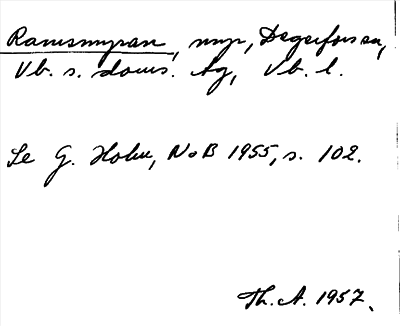 Ramsmyran, myr, Degerfors sn,
Vb. s. doms. Ag, Vb. l.
Se G. Holm, NoB 1955, s. 102.
Th. A. 1957.